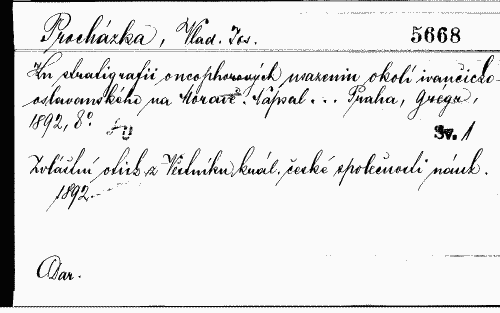 Procházka, Vlad. Jos. 5668
Ku stratigrafii oncophorových usazenin okolí ivančicko-
oslavanského na Moravě. Napsal ... Praha, Grégr,
1892, 8° Sv. 1
Zvláštní otisk z Věstníku král. české společnosti náuk.
1892.
Dar.